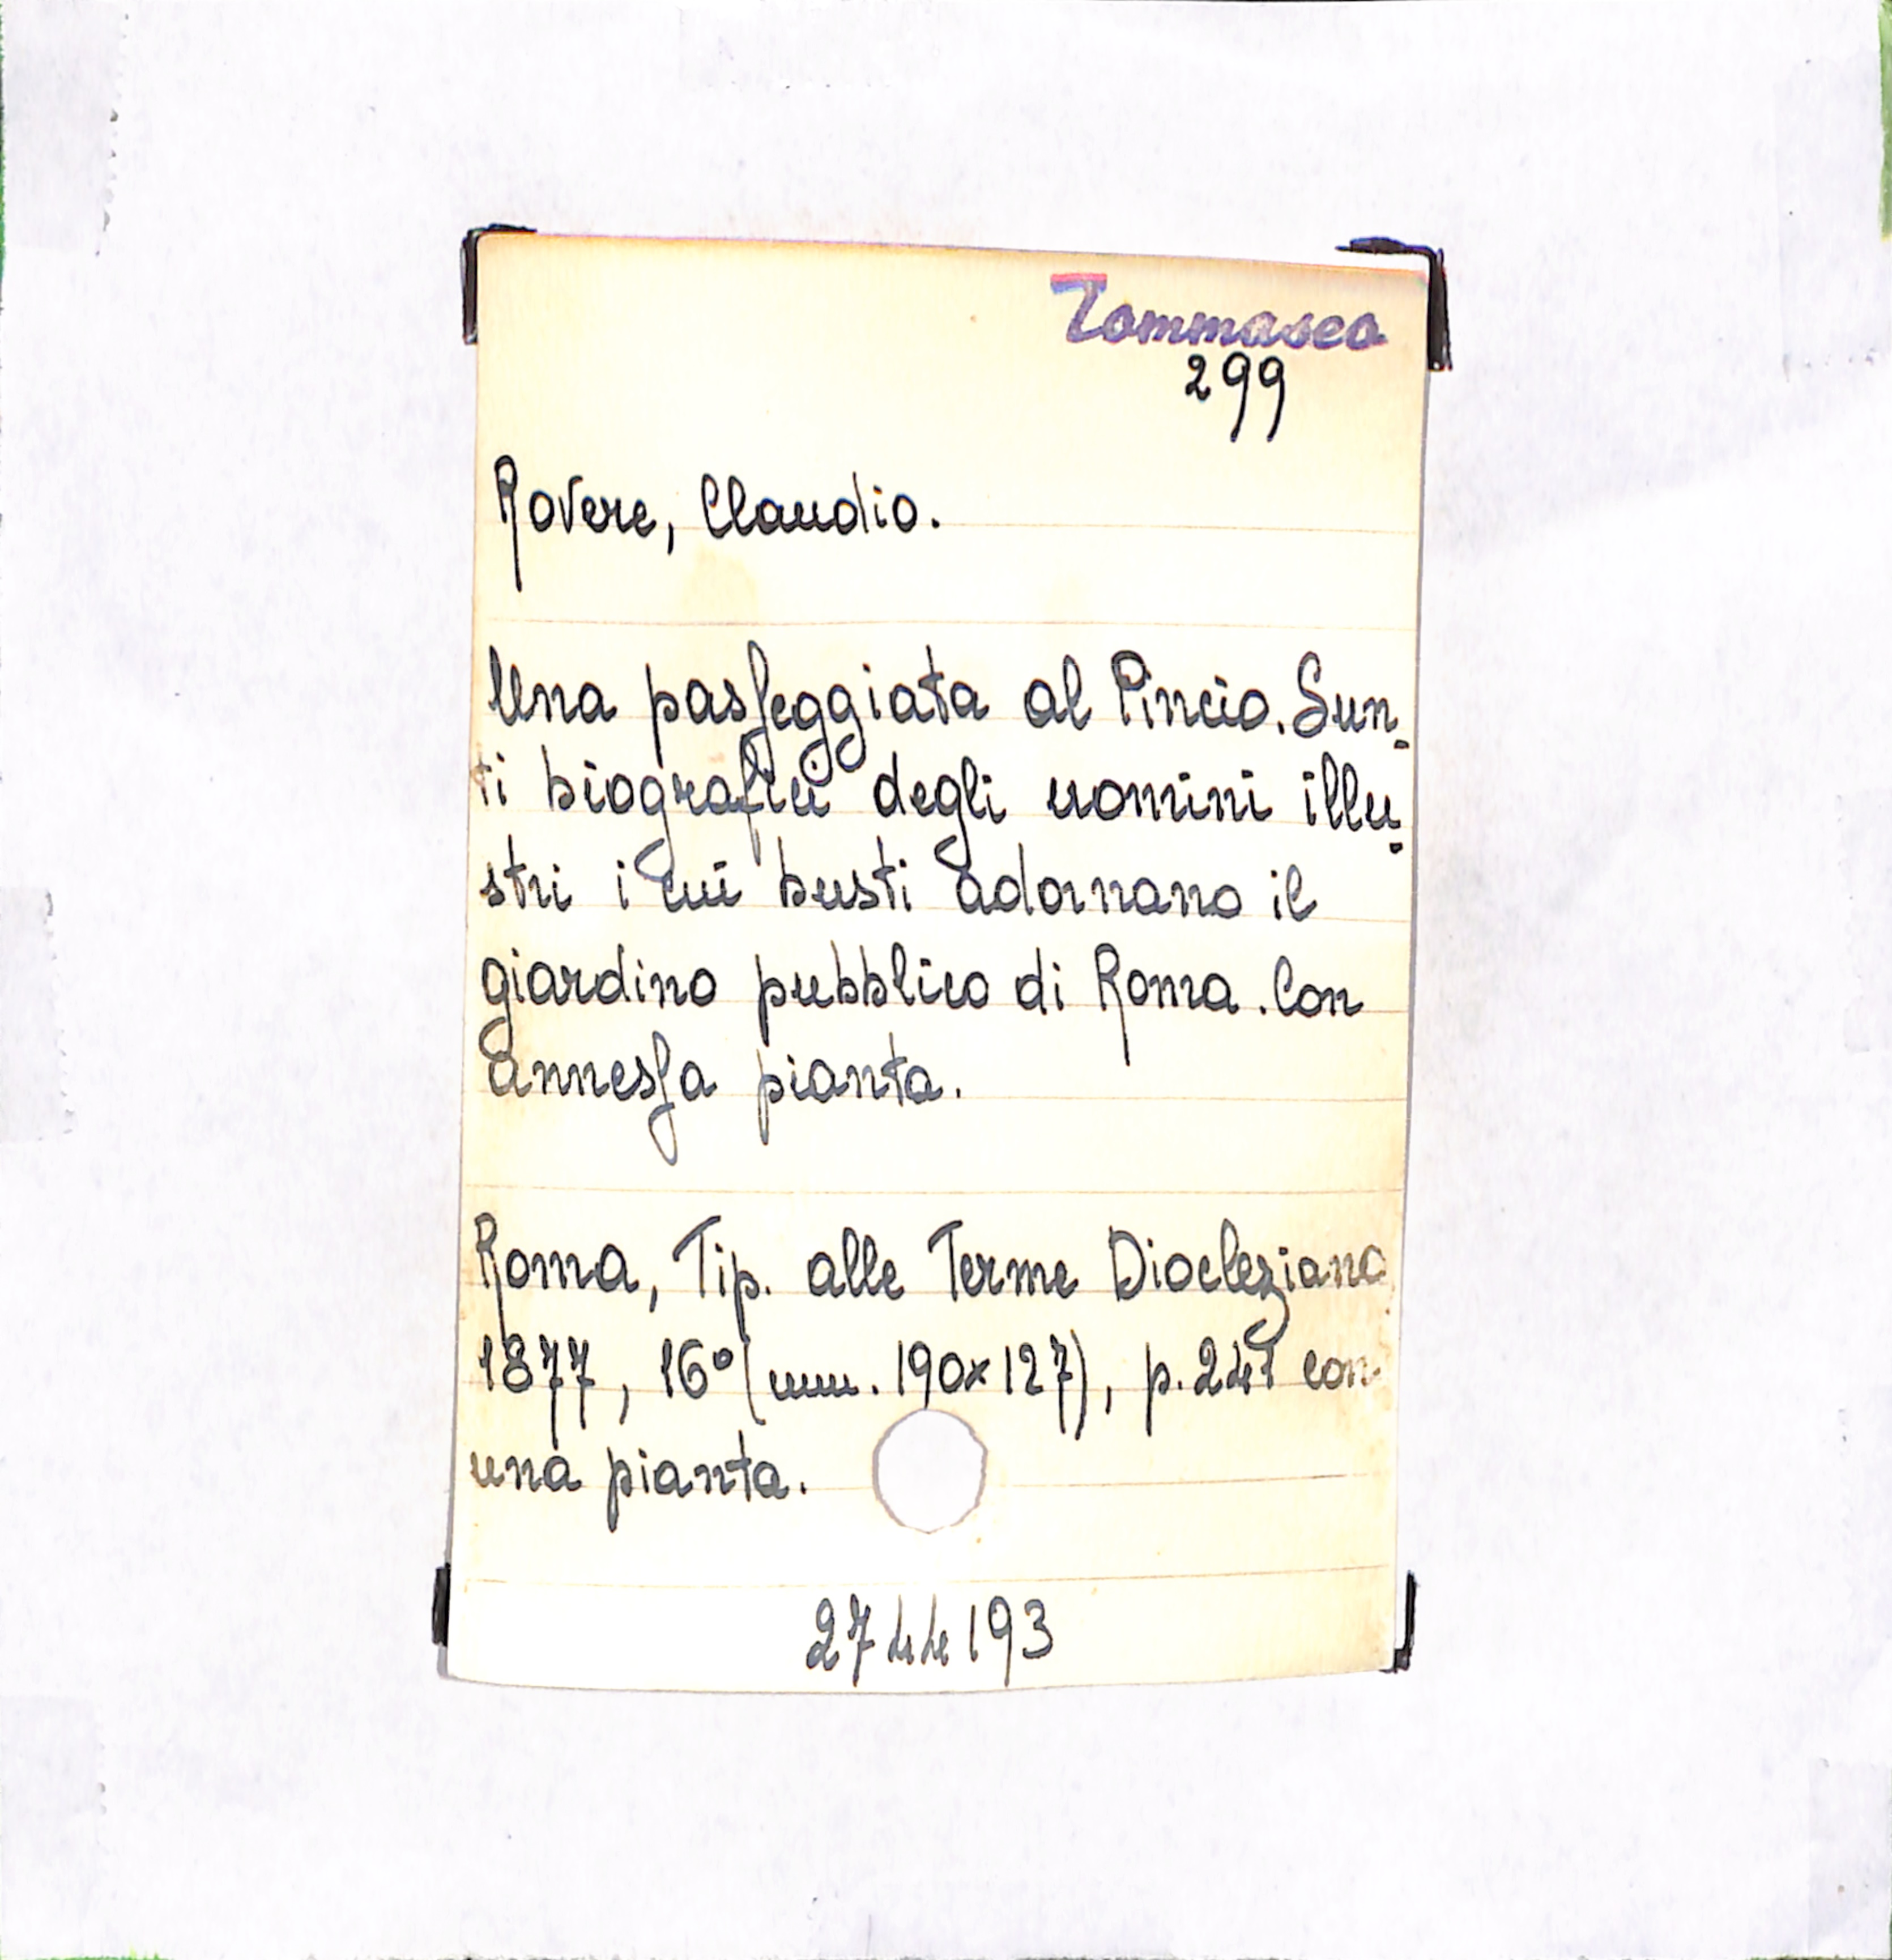 Tommaseo
299
Rovere, Claudio.
Una passeggiata al Pincio. Sun-
ti biografici degli uomini illu-
stri i cui busti adornano il
giardino pubblico di Roma. Con
annessa pianta.
Roma, Tip. alle Terme Diocleziane
1877, 16° (mm. 190x127), p. 241 con
una pianta.
27 193